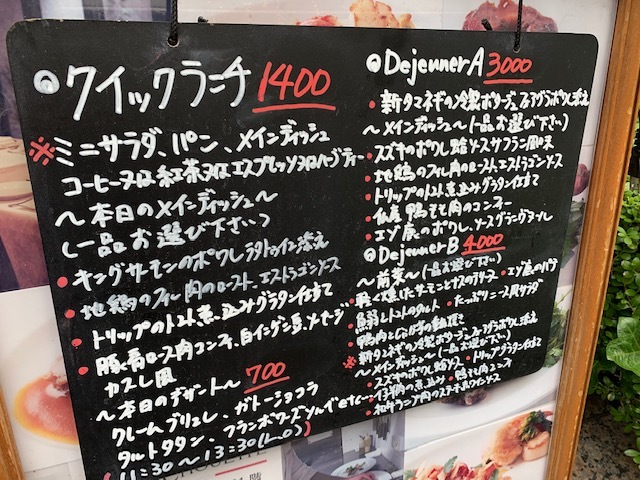 クイックランチ 1400
※ミニサラダ、パン、メインディッシュ
コーヒー又は紅茶又はエスプレッソ又はハーブティー
～本日のメインディッシュ～
(一品お選び下さい)
・キングサーモンのポワレ ラタトゥイユ添え
・地鶏のフィレ肉のロースト、エストラゴンソース
・トリップのトマト煮込みグラタン仕立て
・豚肩ロース肉コンフィ、白インゲン豆、ソーセージ
カスレ風
～本日のデザート～ 700
クレームブリュレ、ガトーショコラ
タルトタタン、フランボワーズソルベetc
11:30～13:30(L.O)
Dejeuner A 3000
・新タマネギの冷製ポタージュ、フォアグラポワレ添え
～メインディッシュ～(一品お選び下さい)
・スズキのポワレ サフラン風味
・地鶏のフィレ肉のロースト、エストラゴンソース
・トリップのトマト煮込みグラタン仕立て
鴨もも肉のコンフィ
・エゾ鹿のポワレ、ソースグランヴヌール
Dejeuner B 4000
～前菜～(一品お選び下さい)
・エゾ鹿のパテ
トマトのタルト
・たっぷりニース風サラダ
※新タマネギの冷製ポタージュ、フォアグラポワレ添え
～メインディッシュ～(一品お選び下さい)
・トリップグラタン仕立て
・仔羊肉の煮込み・鴨もも肉コンフィ
・和牛ランプ肉のステーキ赤ワインソース